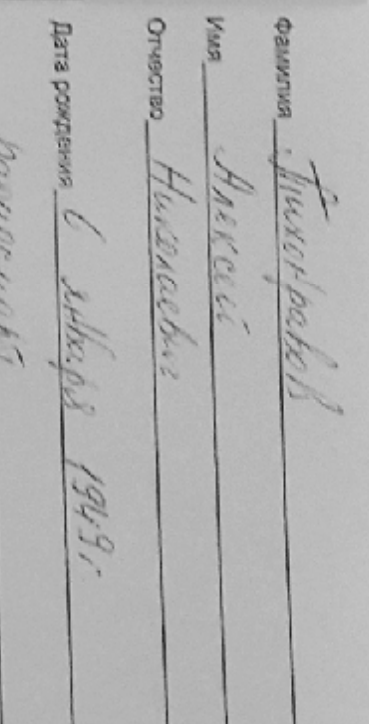 Фамилия Тихонравов
Имя Алексей
Отчество Николаевич
Дата рождения 6 января 1949 г.